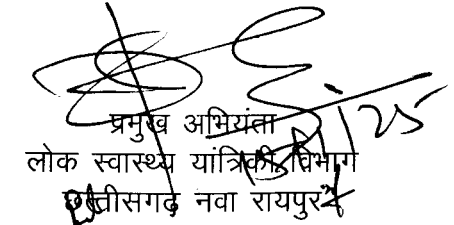 प्रमुख अभियंता
लोक स्वास्थ्य यांत्रिकी विभाग
छत्तीसगढ़ नवा रायपुर